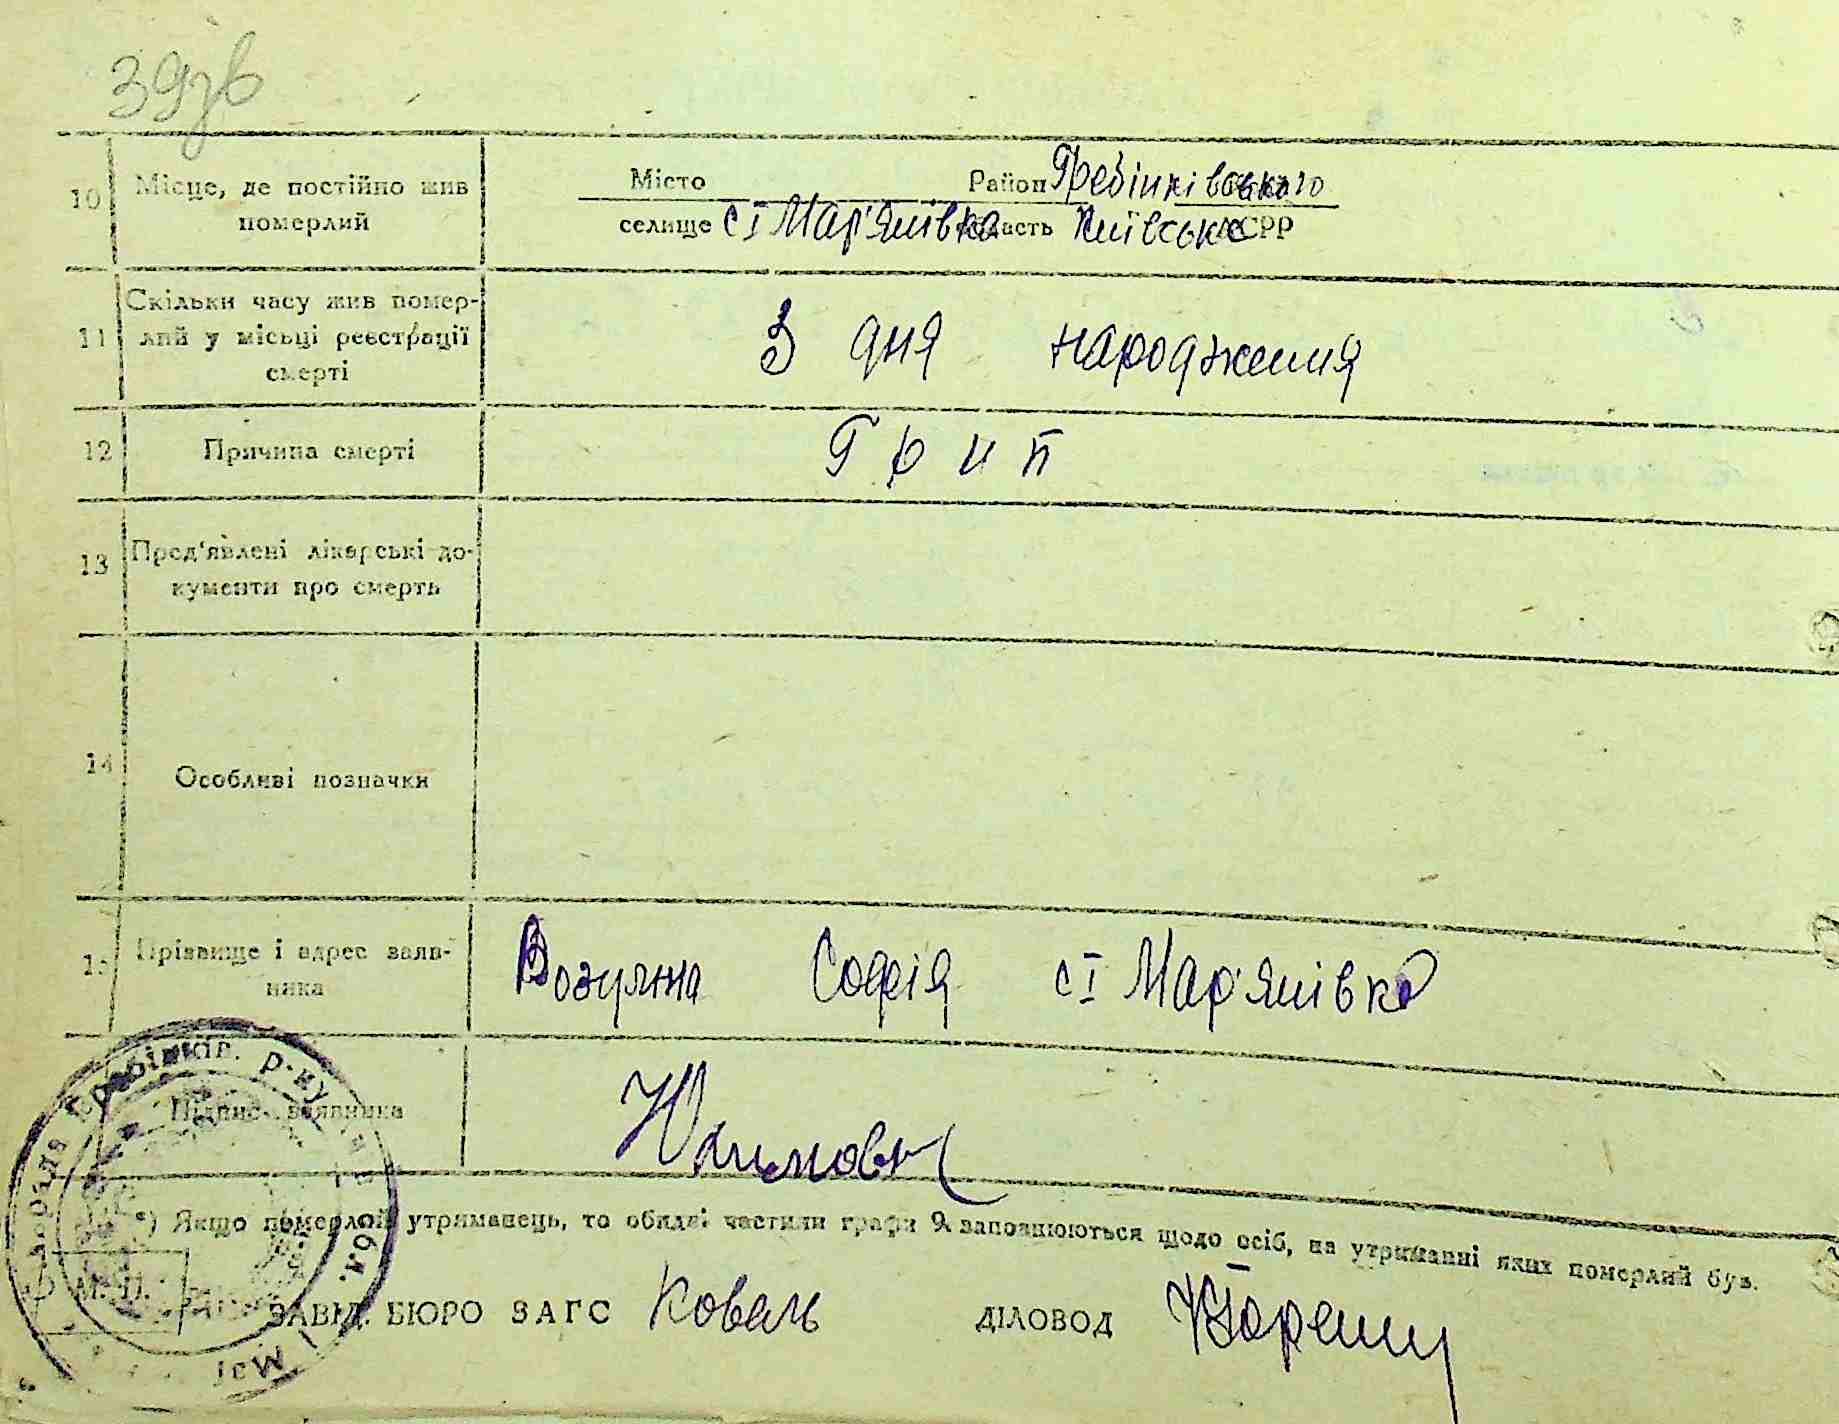 39зв
10 Місце, де постійно жив померлий
Місто Район Гребінківського
селище с І Мар'янівка область Київська АСРР
11 Скільки часу жив помер-
лий у місьці реєстрації
смерті
З дня народження
12 Причина смерті Грип
13 Пред'явлені лікарські до-
кументи про смерть
14 Особливі позначки
15 Прізвище і адрес заяв-
ника
Софія с І Мар'янівка
Підпис заявника
*) Якщо померлий утриманець, то обидві частини графи 9 заповнюються щодо осіб, на утриманні яких померлий був.
М. П.
ЗАВІД. БЮРО ЗАГС Коваль ДІЛОВОД
Гребінків. р-ну обл.